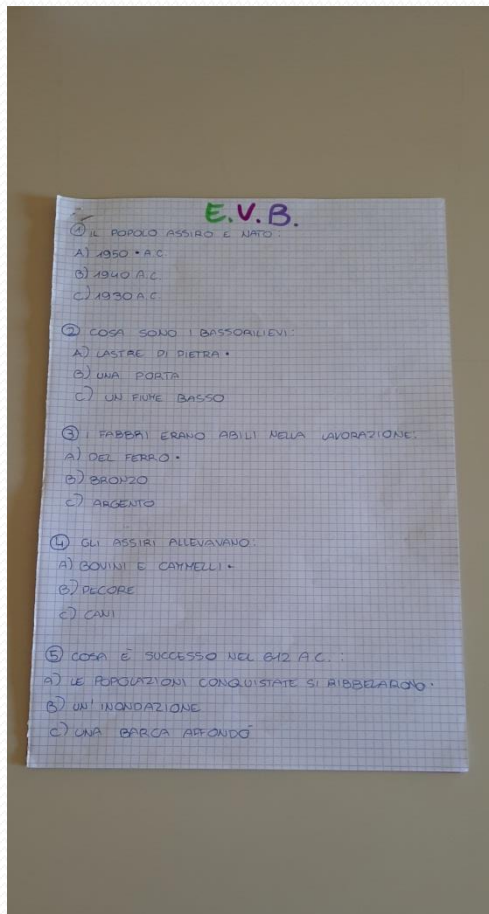 E.V.B.
① IL POPOLO ASSIRO E NATO:
A) 1950 • A.C.
B) 1940 A.C.
C) 1930 A.C.
② COSA SONO I BASSORILIEVI:
A) LASTRE DI PIETRA •
B) UNA PORTA
C) UN FIUME BASSO
③ I FABBRI ERANO ABILI NELLA LAVORAZIONE:
A) DEL FERRO •
B) BRONZO
C) ARGENTO
④ GLI ASSIRI ALLEVAVANO:
A) BOVINI E CAMMELLI •
B) PECORE
C) CANI
⑤ COSA È SUCCESSO NEL 612 A.C.:
A) LE POPOLAZIONI CONQUISTATE SI RIBBELARONO •
B) UN'INONDAZIONE
C) UNA BARCA AFFONDÒ